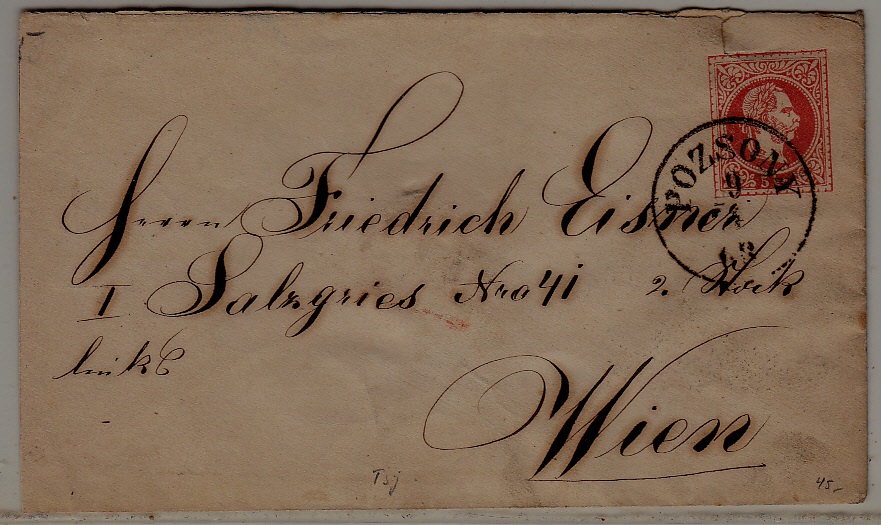 POZSONY
9
5
Herrn Friedrich Eisner
I Salzgries Nro 41 2. Stock
links
Wien
45,-